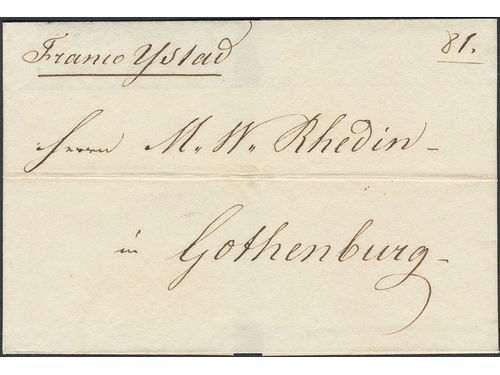 Franco Ystad
81.
Herrn M. W. Rhedin
in Gothenburg